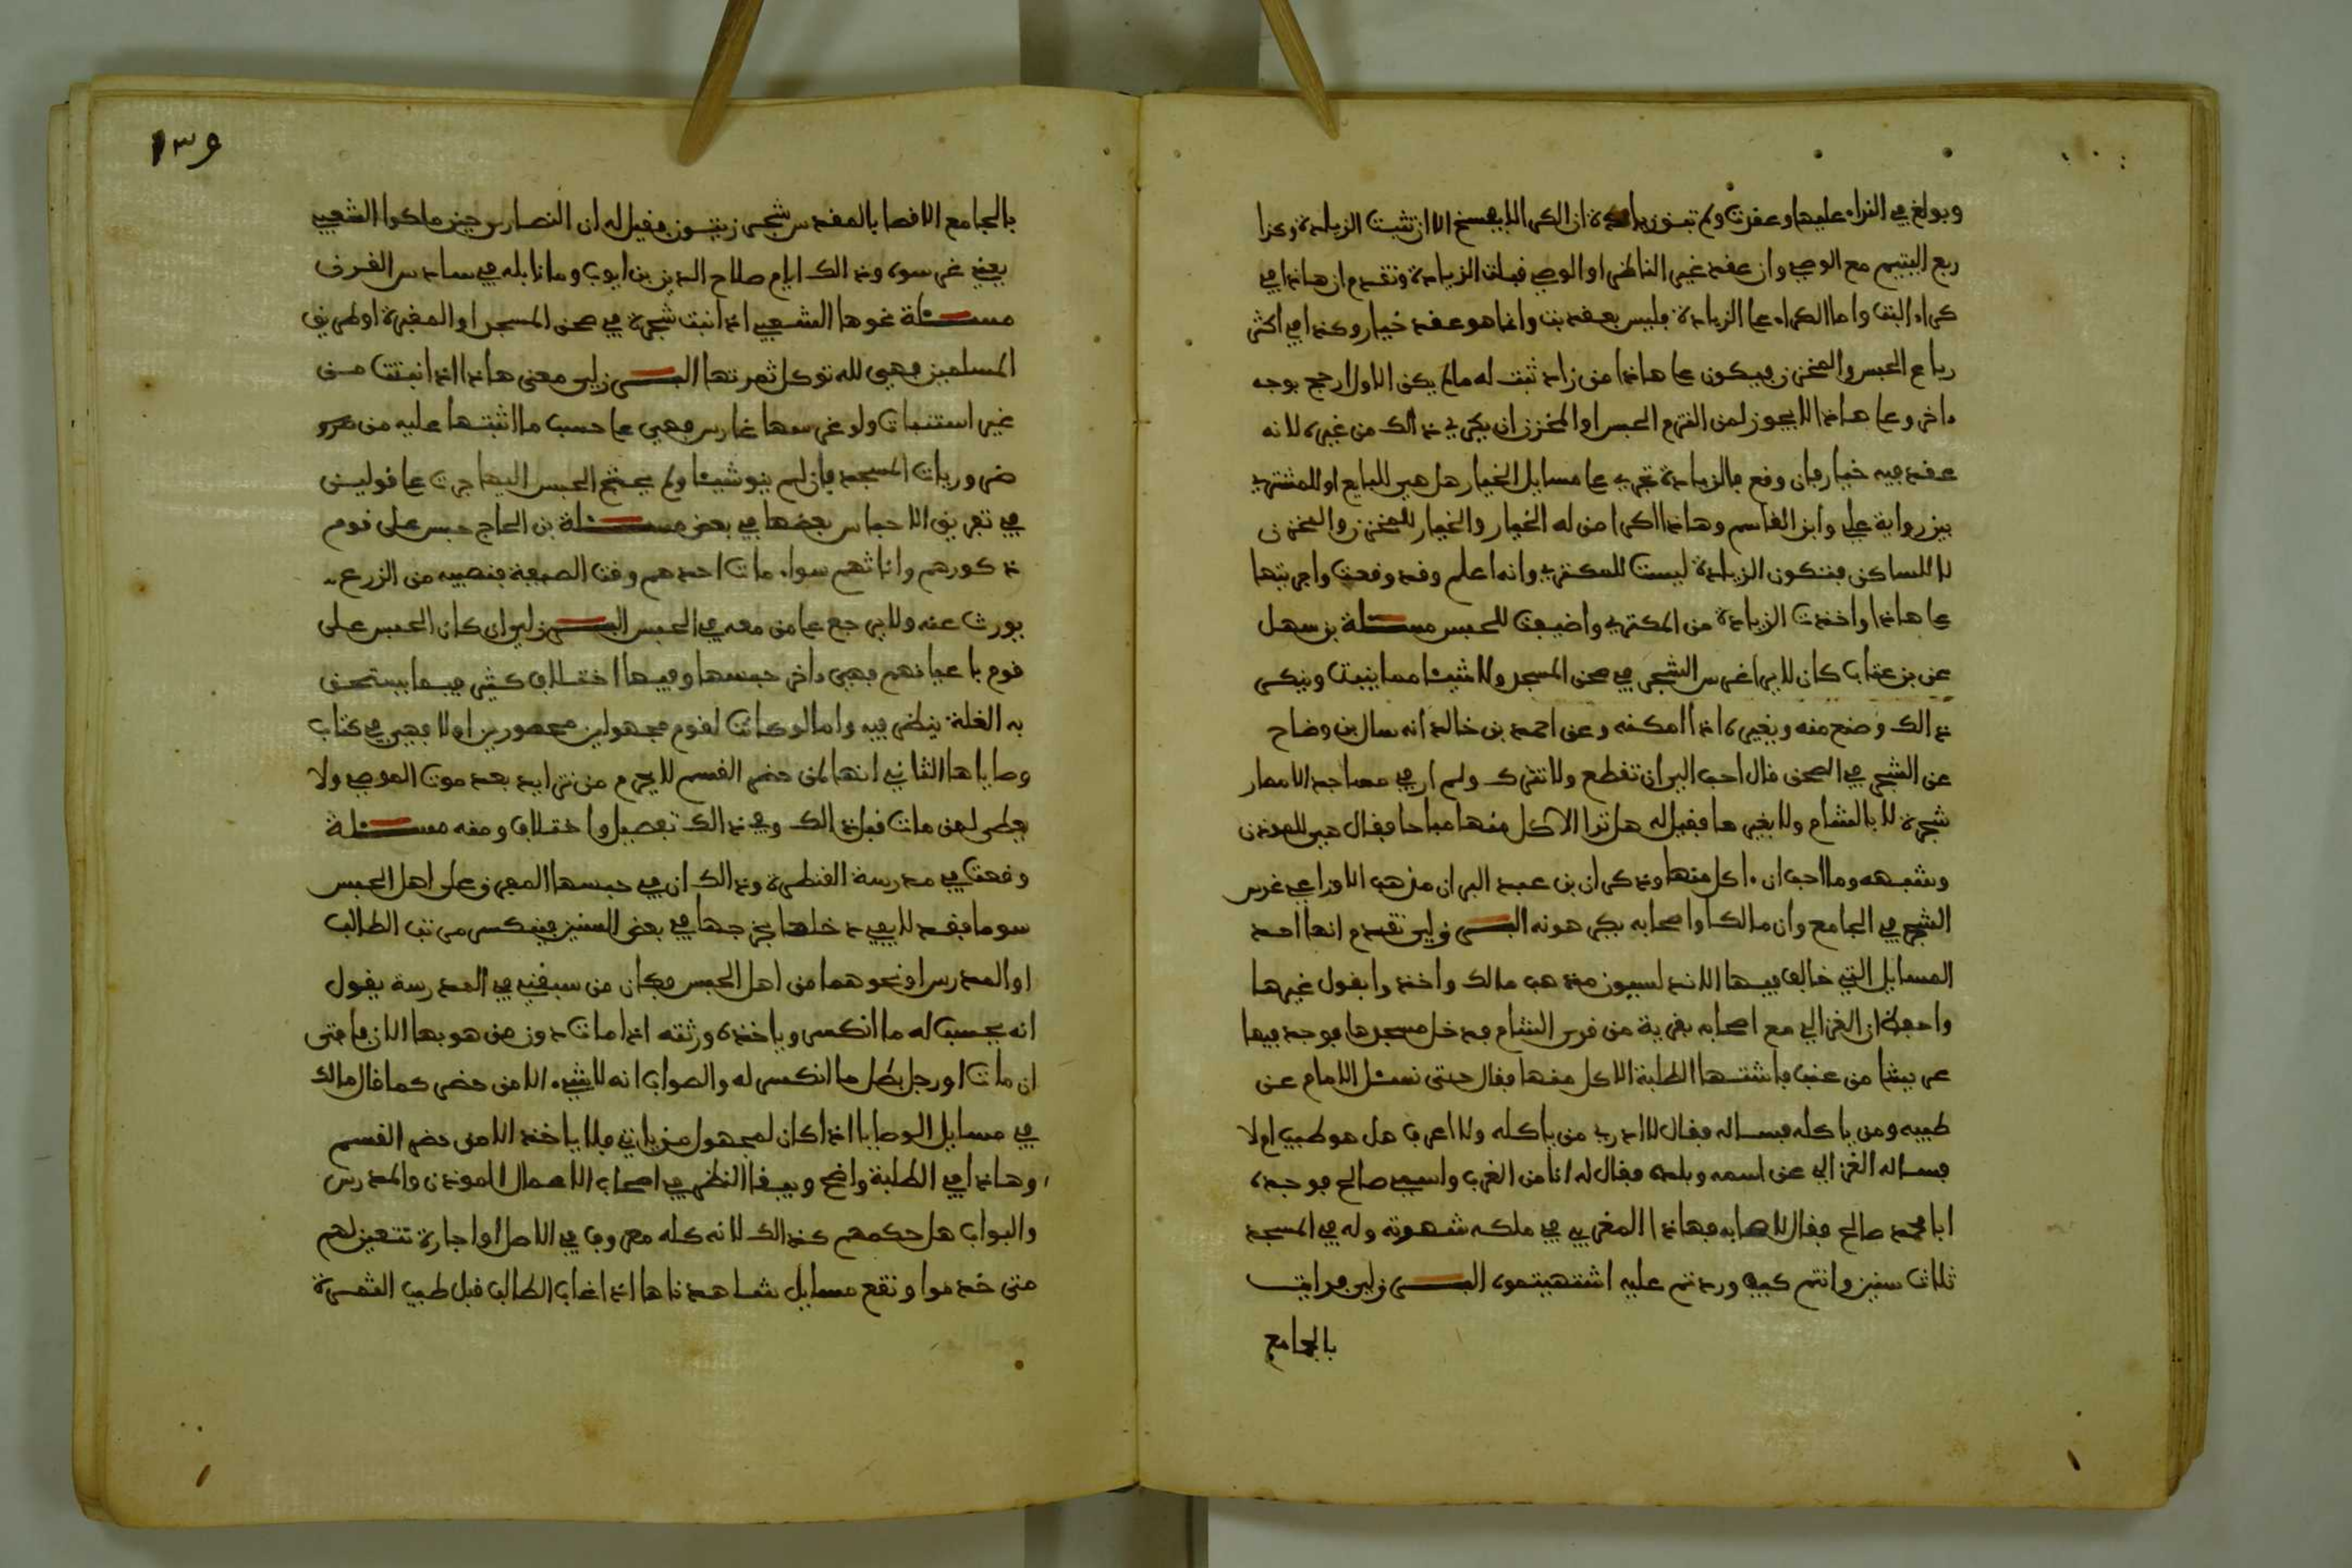 وبولغ في النداء عليها وعقدت ولم تبن زيادة ان الكراء لا يفسخ الا ان تثبت الزيادة وكذا
ربع اليتيم مع الوصي وان عقده غير الناظر او الوصي قبلت الزيادة وتقدم ان هاذا في
كراء البت واما الكراء على الزيادة فليس بعقد بت وانما هو عقد خيار وكذا في اكثر
رباع الحبس والمخزن فيكون على هاذا من زاد ثبت له ما لم يكن الاول ارجح بوجه
ءاخر وعلى هاذا لا يجوز لمن التزم الحبس او المخزن ان يكري ذالك من غيره لانه
عقد فيه خيار فان وقع بالزيادة تجري على مسايل الخيار هل هي للبايع او للمشتري
بين رواية علي وابن القاسم وهاذا اكرا من له الخيار والخيار للمخزن والمخزن
لا للساكن فتكون الزيادة ليست للمكتري والله اعلم وقد وقعت واجريتها
على هاذا واخذت الزيادة من المكتري واضيفت للحبس مسئلة بن سهل
عن بن عتاب كان لا يرا غرس الشجر في صحن المسجد ولا شيئا مما ينبت وينكر
ذالك وضح منه ويغيره اذا امكنه وعن احمد بن خالد انه سال بن وضاح
عن الشجر في الصحن قال احب الي ان تقطع ولا تترك ولم ار في مساجد الامصار
شجرة لا بالشام ولا بغيرها فقيل له هل ترا الاكل منها مباحا فقال هي للموذن
وشبهه وما احب ان ءاكل منها وذكر ان بن عبد البر ان مذهب الاوزاعي غرس
الشجر في الجامع وان مالكا واصحابه يكرهونه البرزلي تقدم انها احد
المسايل التي خالف فيها الاندلسيون مذهب مالك واخذوا بقول غيرها
ان الغزالي مع اصحابه بقرية من قرى الشام فدخل مسجدها فوجد فيها
عريشا من عنب فاشتها الطلبة الاكل منها فقال حتى نسئل الامام عن
طيبه ومن ياكله فساله فقال لا ادري من ياكله ولا اعرف هل هو طيب ام لا
فساله الغزالي عن اسمه وبلده فقال له انا من الغرب واسمي صالح فوجده
ابا محمد صالح فقال لاصحابه فهاذا المغربي في ملكه شهوته وله في المسجد
ثلاث سنين وانتم كيف وردتم عليه اشتهيتموه البرزلي فرايت
بالجامع
١٣٩
بالجامع الاقصا بالمقدس شجر زيتون فقيل له ان النصارى حين ملكوا الشعبي
يعني غرسوه وذالك ايام صلاح الدين بن ايوب وما نابله في سادس القرن
مسئلة نحوها الشعبي اذا نبت شجرة في صحن المسجد او المقبرة او طريق
المسلمين فهي لله توكل ثمرتها البرزلي معنى هاذا اذا نبتت من
غير استنبات ولو غرسها غارس فهي على حسب ما اثبتها عليه من
ضروريات المسجد فان لم ينو شيئا ولم يحتج الحبس اليها جرت على قولين
في تفريق الاحباس بعضها في بعض مسئلة بن الحاج حبس على قوم
ذكورهم واناثهم سواء مات احدهم وقت الصيفة فنصيبه من الزرع
يورث عنه ولا يرجع على من معه في الحبس البرزلي ان كان الحبس على
قوم باعيانهم فهي داخر حبسها وفيها اختلاف كثير فيما يستحق
به الغلة ينظر فيه واما لو كانت لقوم مجهولين محصورين اولا فهي في كتاب
وصاياها الثاني انها لمن حضر القسم لا يحرم من تزايد بعد موت الموصي ولا
يعطى لمن مات قبل ذالك وفي ذالك تفصيل واختلاف ومنه مسئلة
وقعت في مدرسة القنطرة وذالك ان في حبسها المفرق على اهل الحبس
سوما فقد لا يفي دخلها بخرجها في بعض السنين فينكسر مرتب الطالب
او المدرس او نحوهما من اهل الحبس فكان من سبقني في المدرسة يقول
انه يحسب له ما انكسر وياخذه ورثته اذا مات دون من هو بها الان فامتى
ان مات او رحل بطل ما انكسر له والصواب انه لا شيء الا من حضر كما قال مالك
في مسايل الوصايا اذا كان لمجهول من ياتي فلا ياخذ الا من حضر القسم
وهاذا في الطلبة واضح ويبقا النظر في اصحاب الاعمال الموذن والمدرس
والبواب هل حكمهم كذالك لانه كله معروف في الاصل او اجارة تتعين لهم
متى خدموا وتقع مسايل شاهدناها اذا غاب الطالب قبل طيب الثمرة